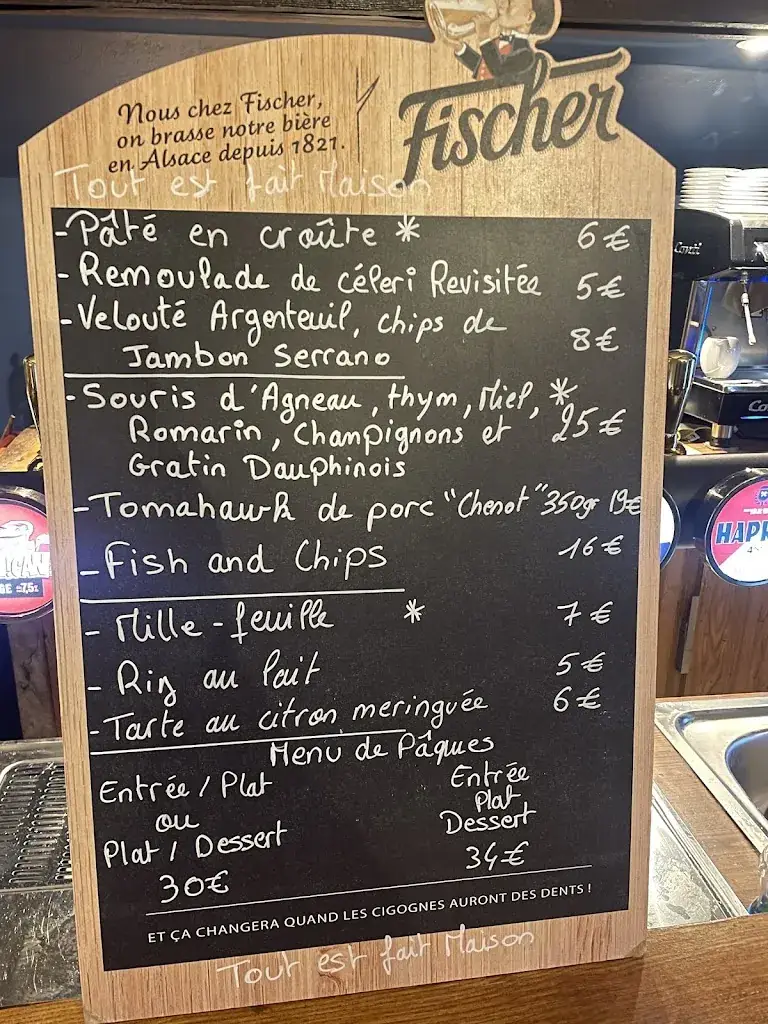 Nous chez Fischer,
on brasse notre bière
en Alsace depuis 1821.
Fischer
Tout est fait Maison
- Pâté en croûte * 6€
- Remoulade de céleri Revisitée 5€
- Velouté Argenteuil, chips de
Jambon Serrano 8€
- Souris d'Agneau, thym, Miel, *
Romarin, Champignons et 25€
Gratin Dauphinois
- Tomahawk de porc "Chenot" 350gr 19€
- Fish and Chips 16€
- Mille-feuille * 7€
- Riz au lait 5€
- Tarte au citron meringuée 6€
Menu de Pâques
Entrée / Plat
ou
Plat / Dessert
30€
Entrée
Plat
Dessert
34€
ET ÇA CHANGERA QUAND LES CIGOGNES AURONT DES DENTS !
Tout est fait Maison
Conti
HAP